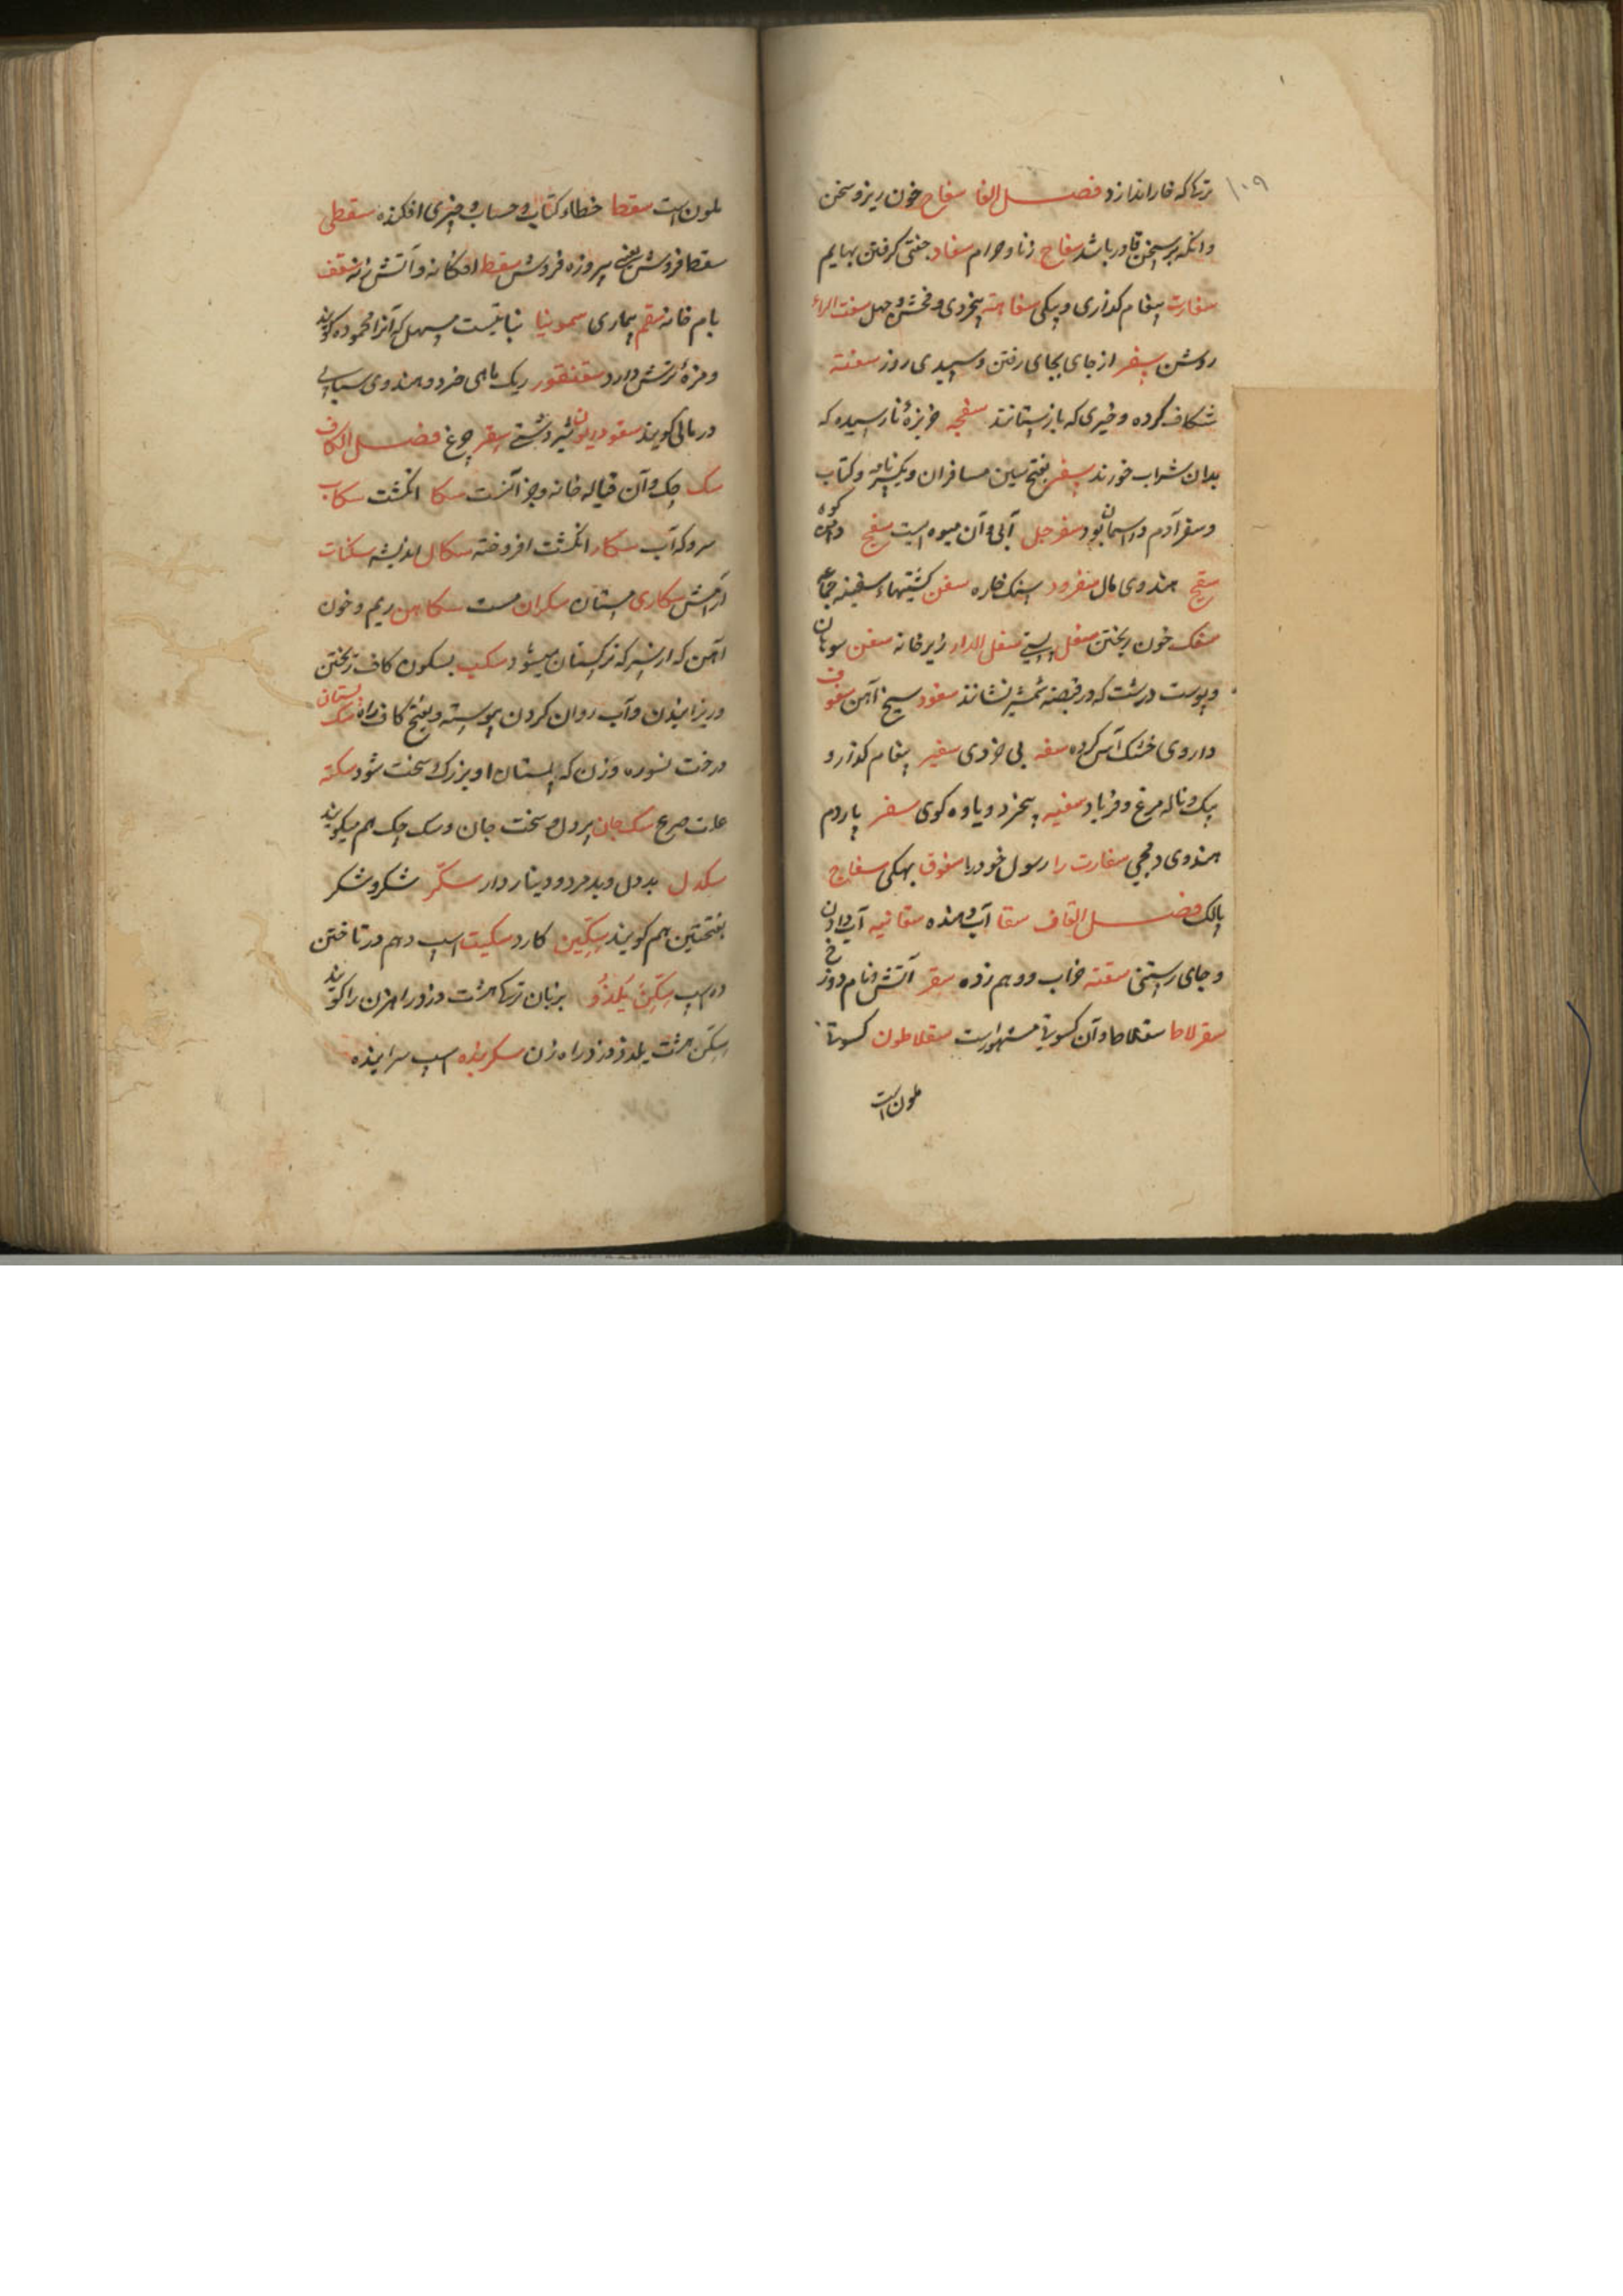 ۱۰۹
ترها که خار اندازد فصل الفا سفاح خون ریز و سخن
وانکه بر سخن قادر باشد سفاح زنا و حرام سفاد جفتی کرفتن بهایم
سفارت پیغام کذاری و پیکی سفاهته بیخردی و فحش و جهل سفت الراء
روشن سفر از جای بجای رفتن و سپیدی روز سفته
شکاف کرده و خیری که باز ستانند سفجه خربزهٔ نارسیده که
بدان شراب خورند سفر بفتح سین مسافران و نامه و کتاب
و سفر آدم در اسمان بود سفرجل آبی و آن میوه ایست سفح دامن کوه
سقح هندوی مال سفرود سنک خاره سفن کشتیهاء سفینه جماعه
سفک خون ریختن سفل پستی سفل الدار زیر خانه سفن سوهان
و پوست درشت که در قبضه شمشیر نشانند سفود سیخ آهن سفوف
داروی خشک آس کرده سفه بی خردی سفیر پیغام کذار و
پیک و ناله مرغ و فریاد سفیه بیخرد و یاوه کوی سفر پاردم
هندوی دمچی سفارت را رسول خود را سفوق بهکی سفاج
پالک فصل القاف سقا آب دهنده سقانیه آب دادن
و جای رستنی سقته خراب و درهم زده سقر آتش و نام دوزخ
سقرلاط سقلاط و آن کسوتی مشهور است سقلاطون کسوتی
ملون است
ملون است سقط خطاء کتاب و حساب و چیزی افکنده سقطی
سقط فروش یعنی پیروزه فروش سقط افکانه و آتش زنه سقف
بام خانه سقم بیماری سمونیا نباتیست مسهل که آنرا محموده کویند
و مزهٔ ترش دارد سقنقور ریک ماهی خرد و هندوی سپاهی
دریائی کویند سقودریون شیر دشتی سقر چرغ فصل الکاف
سک چک و آن قباله خانه و جز آنست سکا انکشت سکاب
سرو که آب سکار انکشت افروخته سکال اندیشه سکنات
آرامش سکاری مستان سکران مست سکاهن ریم و خون
آهن که از سرکه ترکستان میشود سکب بسکون کاف ریختن
و ریزانیدن و آب روان کردن پیوسته و بفتح کاف راه سک پستان
درخت نسوره و زن که پستان او بزرک و سخت شود سکته
علت صرع سک جان پردل و سخت جان و سک چک هم میکویند
سکدل بد دل و بدمرد و دینار دار سکر شکر و شکر
بفتحتین هم کویند سکین کارد سکیت اسپ دهم در تاختن
ده اسپ سکن یلدزو بزبان ترکها هشت دزد و راهزن را کویند
سکن هشت یلدز دزد راه زن سکریده اسپ سرانیده